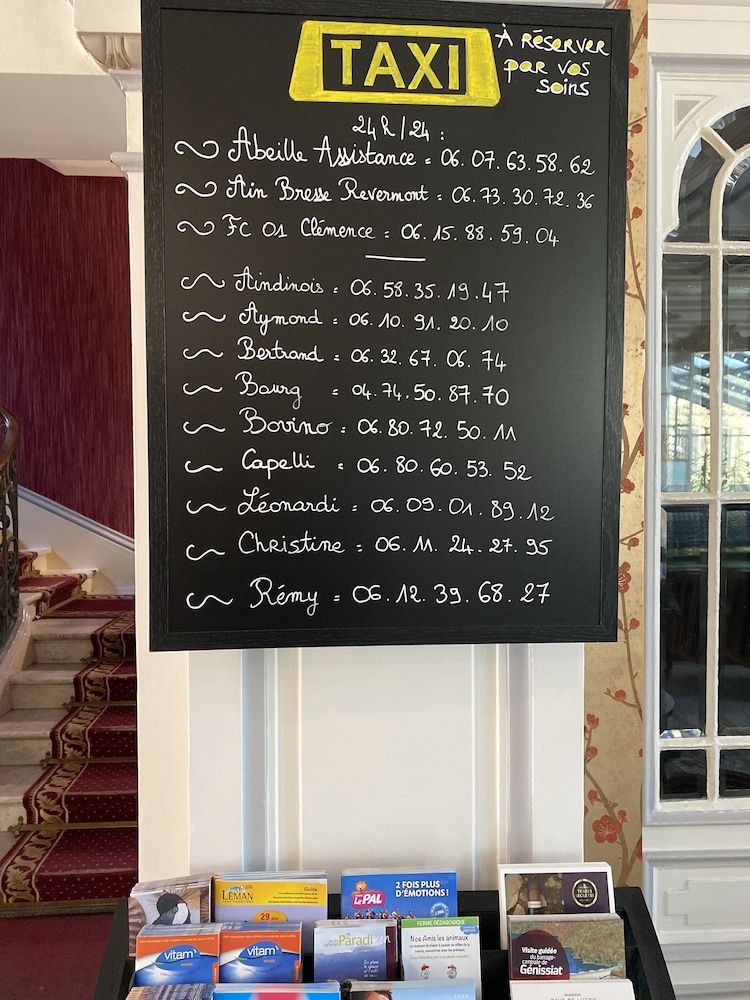 TAXI
À réserver
par vos
soins
24h/24 :
Abeille Assistance = 06.07.63.58.62
Ain Bresse Revermont = 06.73.30.72.36
FC 01 Clémence = 06.15.88.59.04
Aindinois = 06.58.35.19.47
Aymond = 06.10.91.20.10
Bertrand = 06.32.67.06.74
Bourg = 04.74.50.87.70
Bovino = 06.80.72.50.11
Capelli = 06.80.60.53.52
Léonardi = 06.09.01.89.12
Christine = 06.11.24.27.95
Rémy = 06.12.39.68.27
LÉMAN
Guide
29
LE PAL
2 FOIS PLUS
D'ÉMOTIONS !
vitam
vitam
Paradi
FERME PÉDAGOGIQUE
Nos Amis les animaux
Visite guidée
du barrage-
centrale de
Génissiat